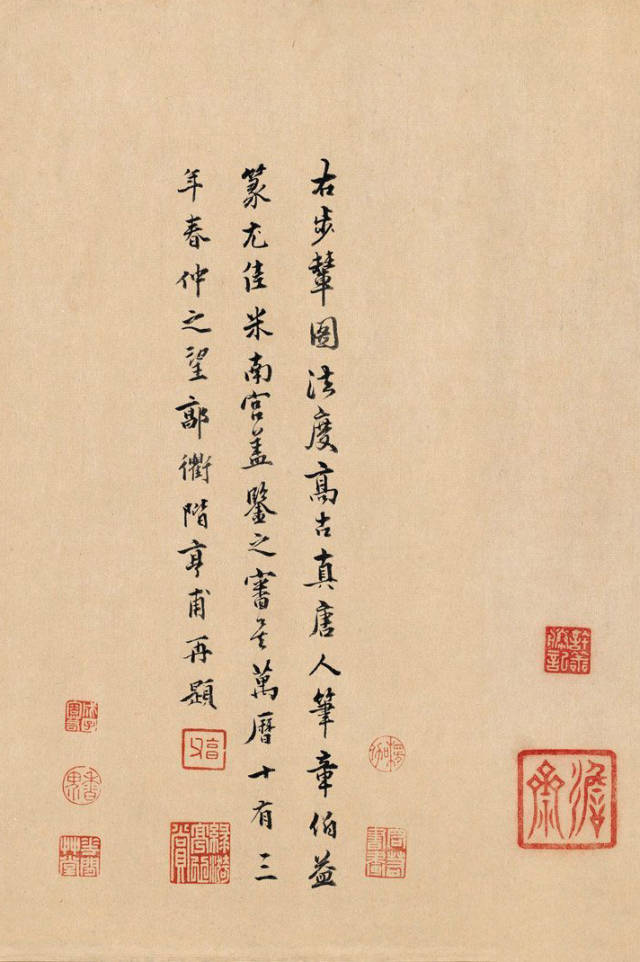 右步輦圖法度高古真唐人筆章伯益
篆尤佳米南宮盖鑒之審矣萬曆十有三
年春仲之望鄗衢階亨甫再題